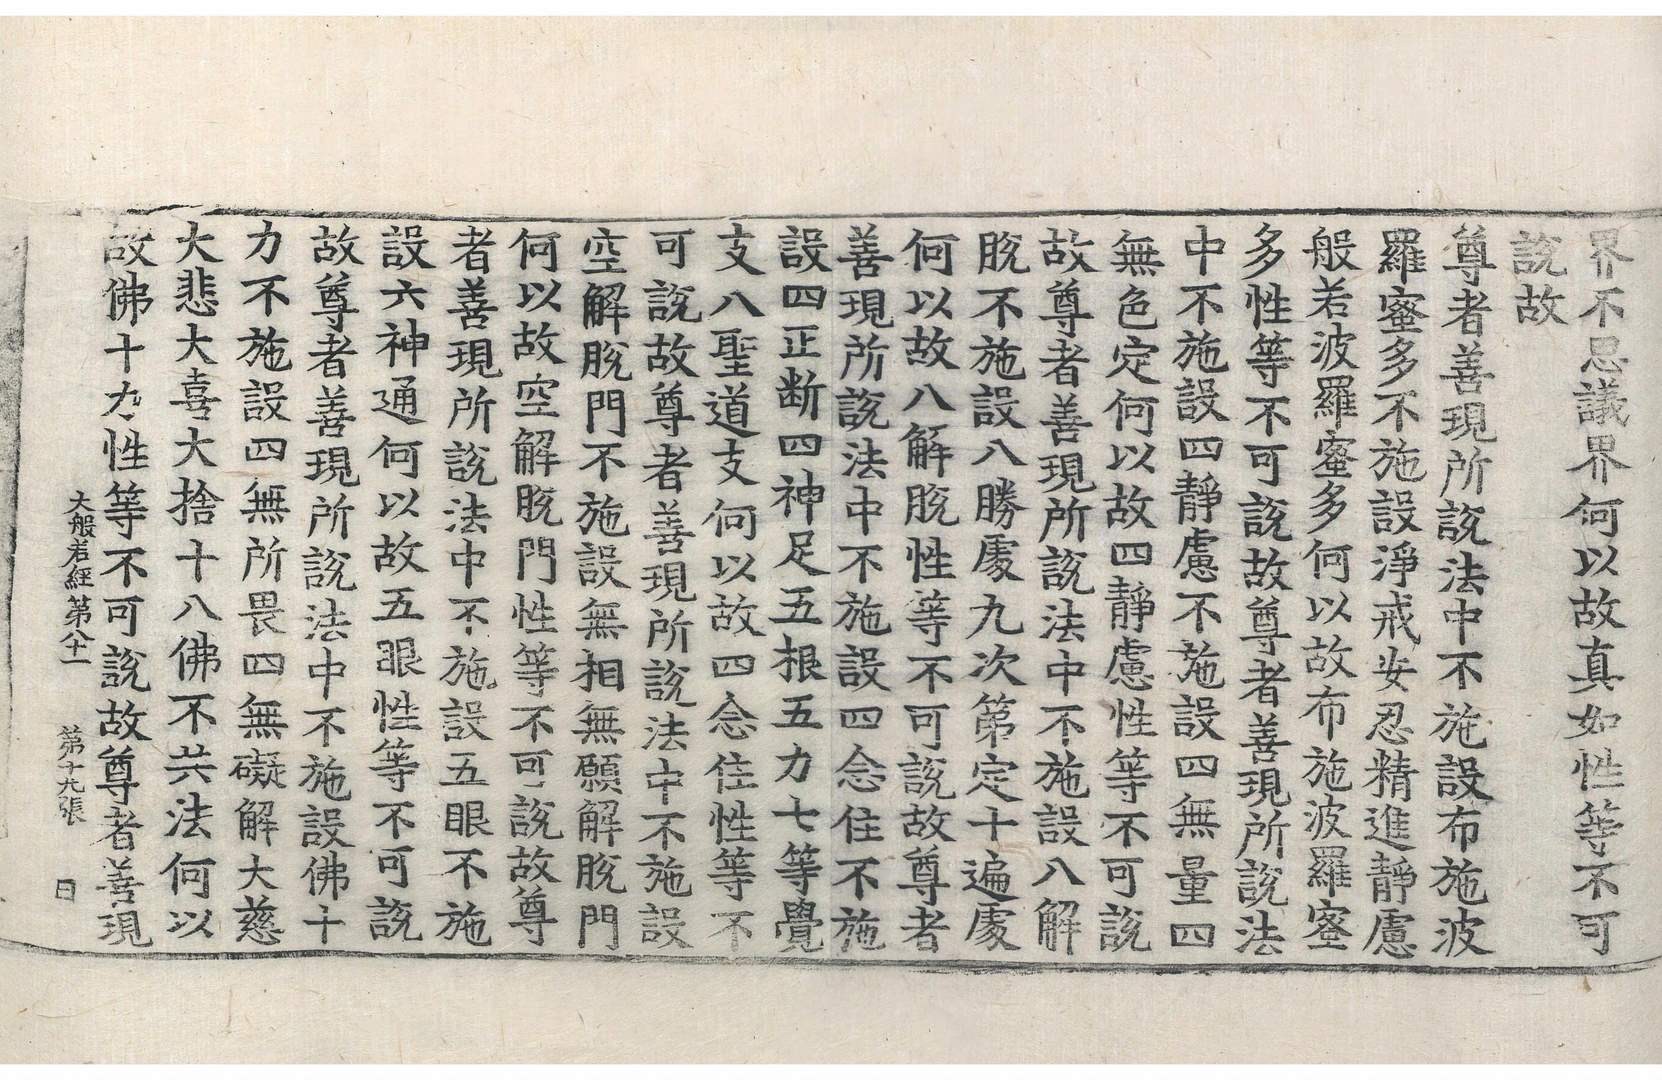 界不思議界何以故真如性等不可
說故
尊者善現所說法中不施設布施波
羅蜜多不施設淨戒安忍精進靜慮
般若波羅蜜多何以故布施波羅蜜
多性等不可說故尊者善現所說法
中不施設四靜慮不施設四無量四
無色定何以故四靜慮性等不可說
故尊者善現所說法中不施設八解
脫不施設八勝處九次第定十遍處
何以故八解脫性等不可說故尊者
善現所說法中不施設四念住不施
設四正断四神足五根五力七等覺
支八聖道支何以故四念住性等不
可說故尊者善現所說法中不施設
空解脫門不施設無相無願解脫門
何以故空解脫門性等不可說故尊
者善現所說法中不施設五眼不施
設六神通何以故五眼性等不可說
故尊者善現所說法中不施設佛十
力不施設四無所畏四無礙解大慈
大悲大喜大捨十八佛不共法何以
故佛十力性等不可說故尊者善現
大般若經第八十一 第十九張 日